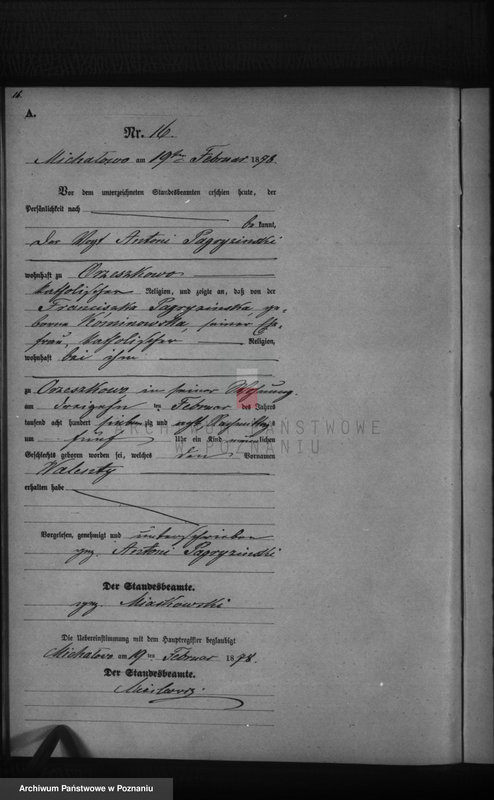 16.
A.
Nr. 16.
Michałowo am 19ten Februar 1878.
Vor dem unterzeichneten Standesbeamten erschien heute, der
Persönlichkeit nach
be kannt,
der Vogt Antoni
wohnhaft zu Orzeszkowo
katholischer Religion, und zeigte an, daß von der
Franciszka ge-
borne Kominowska, seiner Ehe-
frau, katholischer Religion,
wohnhaft bei ihm
zu Orzeszkowo in seiner Wohnung
am dreizehn ten Februar des Jahres
tausend acht hundert siebenzig und acht Nachmittags
um fünf Uhr ein Kind männlichen
Geschlechts geboren worden sei, welches den Vornamen
Walenty
erhalten habe
Vorgelesen, genehmigt und unterschrieben
gez. Antoni
Der Standesbeamte.
gez. Miaskowski
Die Uebereinstimmung mit dem Hauptregister beglaubigt
Michałowo am 19 ten Februar 1878.
Der Standesbeamte.
ARCHIWUM PAŃSTWOWE
W POZNANIU
Archiwum Państwowe w Poznaniu